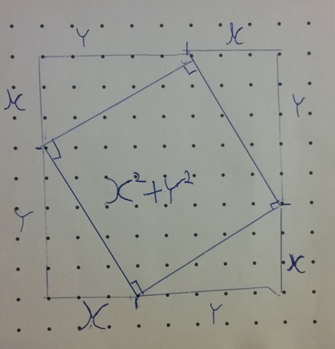 Y x
x Y
x²+Y²
Y x
x Y